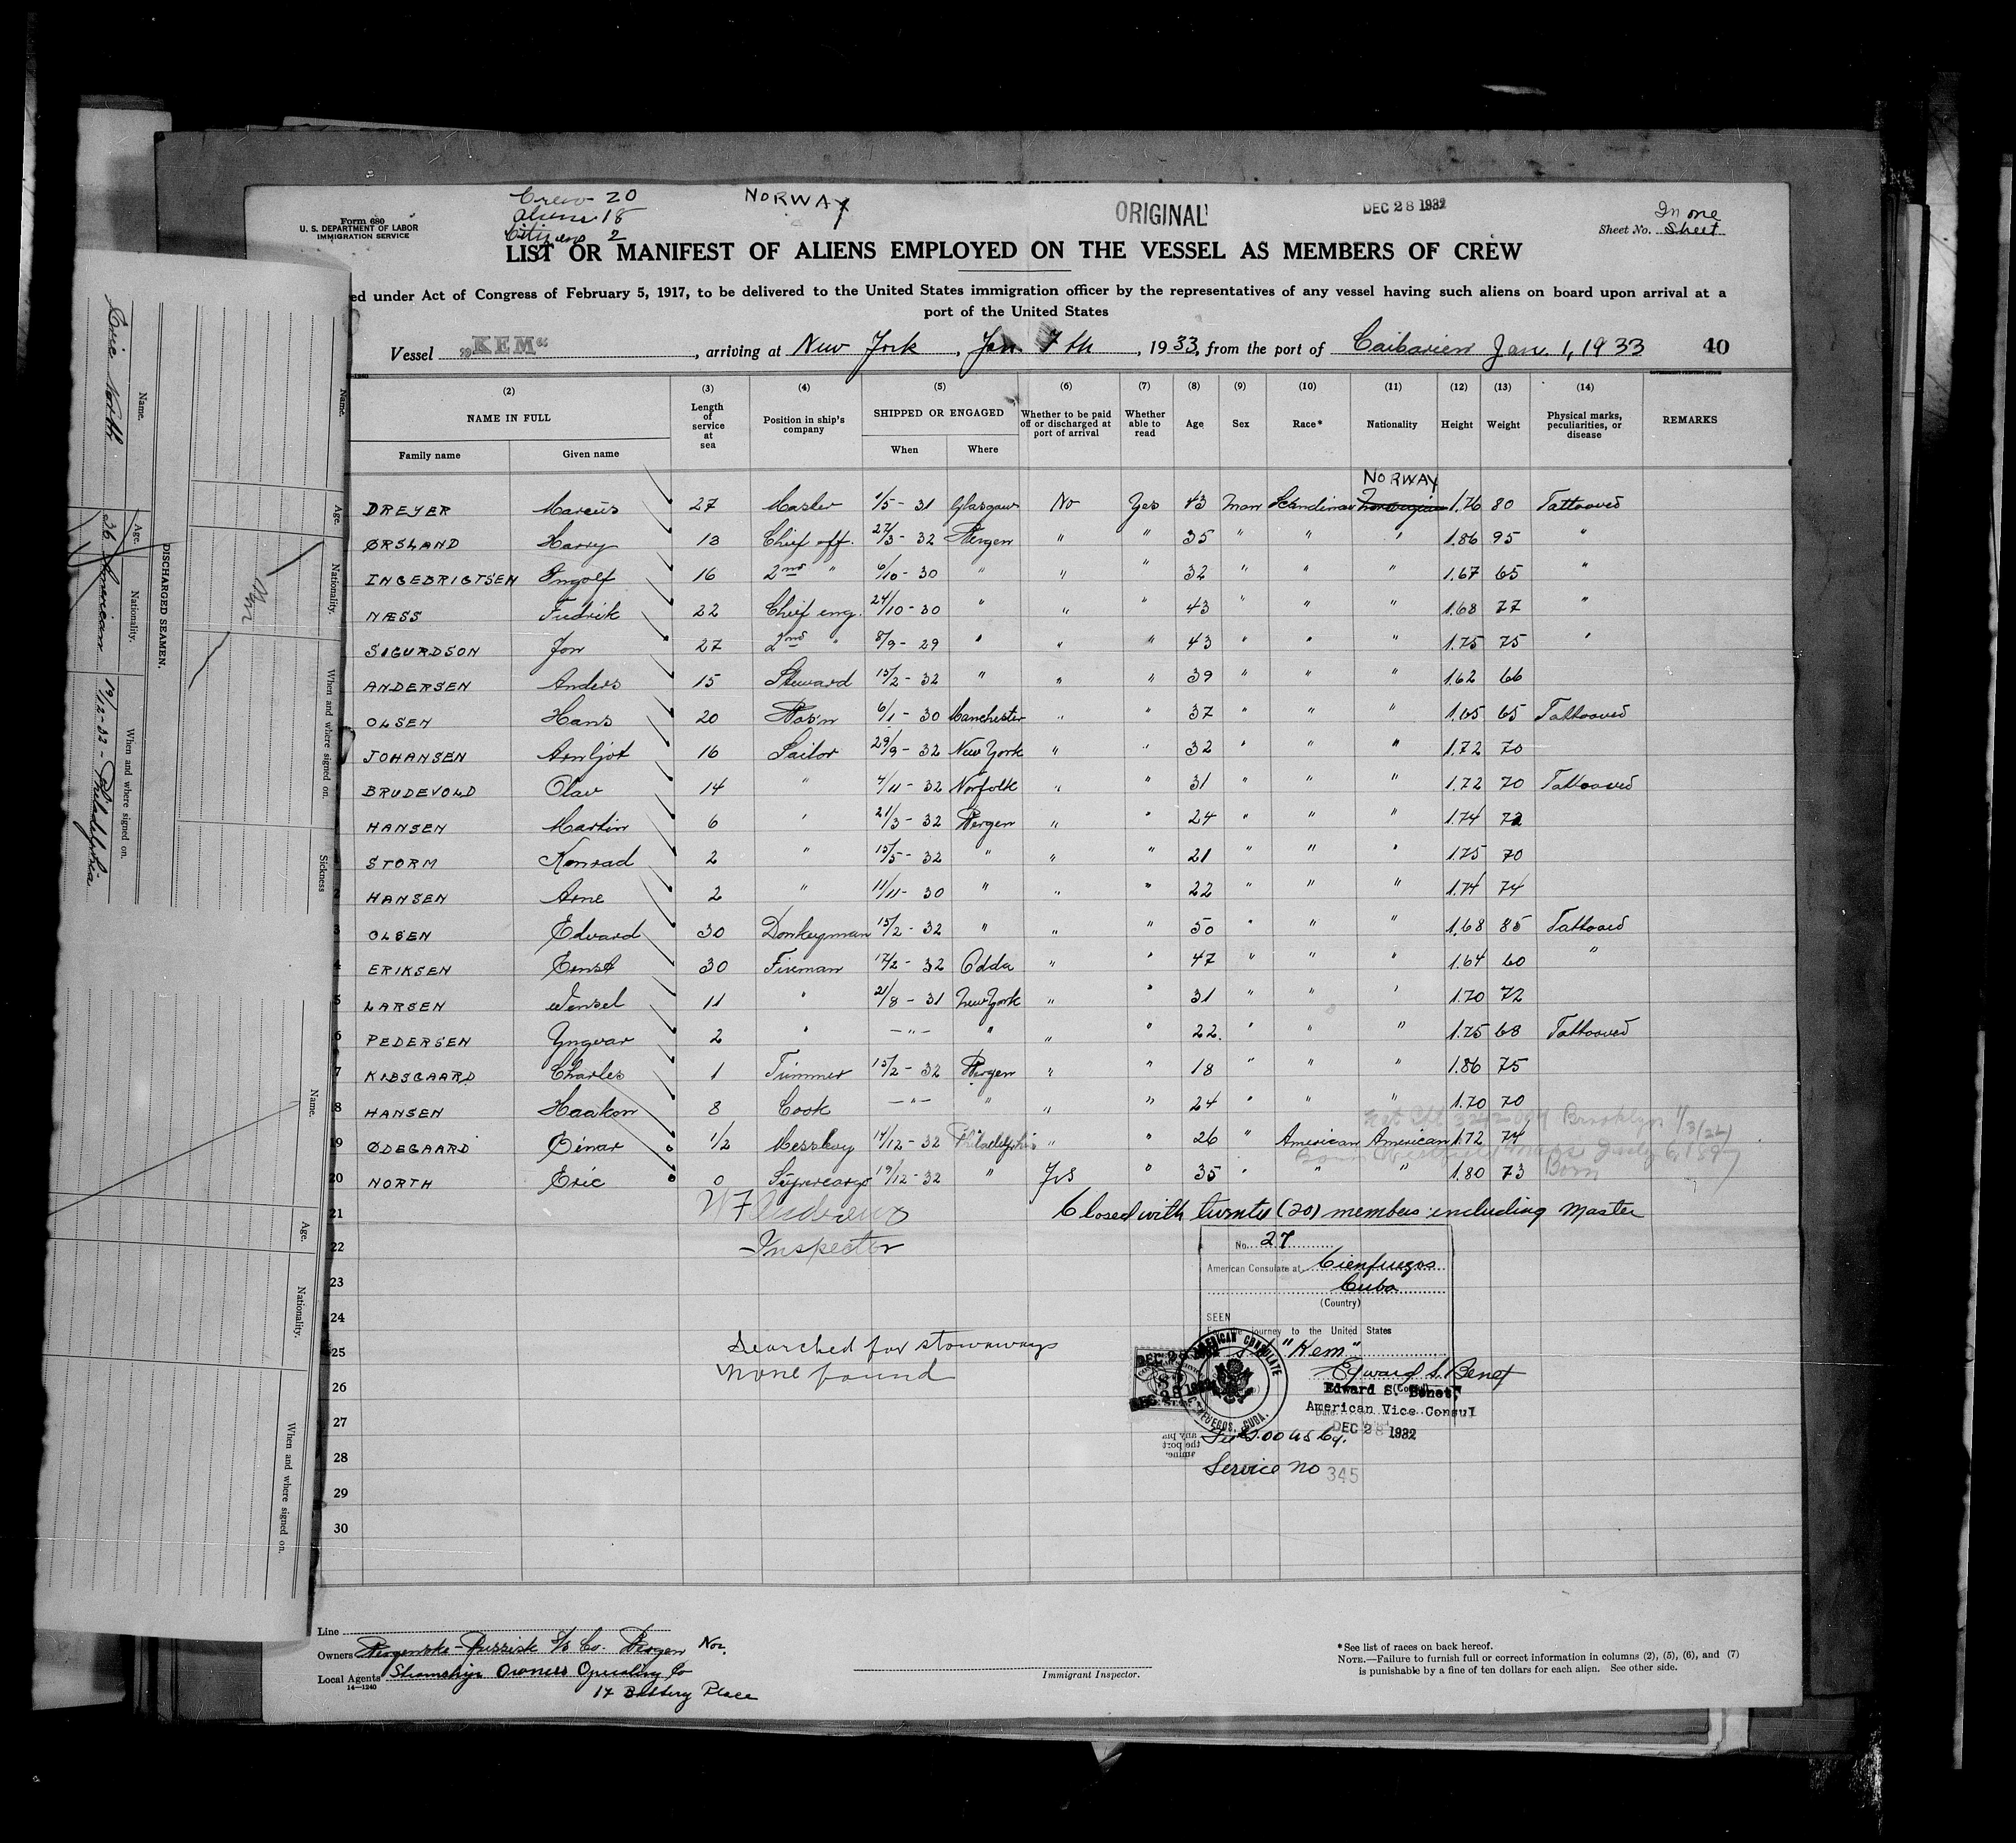 Crew 20
Aliens 18
Citizens 2
NORWAY
ORIGINAL
DEC 28 1932
Form 680
U. S. DEPARTMENT OF LABOR
IMMIGRATION SERVICE
In one
Sheet No. Sheet
LIST OR MANIFEST OF ALIENS EMPLOYED ON THE VESSEL AS MEMBERS OF CREW
ed under Act of Congress of February 5, 1917, to be delivered to the United States immigration officer by the representatives of any vessel having such aliens on board upon arrival at a
port of the United States
Vessel „KEM“, arriving at New York, Jan. 7th, 1933, from the port of Caibarien Jan. 1, 1933 40
(2) (3) (4) (5) (6) (7) (8) (9) (10) (11) (12) (13) (14)
NAME IN FULL Length of service at sea Position in ship's company SHIPPED OR ENGAGED Whether to be paid off or discharged at port of arrival Whether able to read Age Sex Race* Nationality Height Weight Physical marks, peculiarities, or disease REMARKS
Family name Given name When Where
NORWAY
DREYER Marcus 27 Master 1/5 - 31 Glasgow No Yes 43 Man Scandinav Norwegian 1.76 80 Tattooved
ØRSLAND Harry 13 Chief off. 27/3 - 32 Bergen " " 35 " " " 1.86 95 "
INGEBRIGTSEN Ingolf 16 2nd " 6/10 - 30 " " " 32 " " " 1.67 65 "
NÆSS Fredrik 22 Chief eng. 24/10 - 30 " " " 43 " " " 1.68 77 "
SIGURDSON Jon 27 2nd " 8/9 - 29 " " " 43 " " " 1.75 75 "
ANDERSEN Anders 15 Steward 15/2 - 32 " " " 39 " " " 1.62 66
OLSEN Hans 20 Bos'n 6/1 - 30 Manchester " " 37 " " " 1.65 65 Tattooved
JOHANSEN Arnljot 16 Sailor 29/9 - 32 New York " " 32 " " " 1.72 70
BRUDEVOLD Olav 14 " 7/11 - 32 Norfolk " " 31 " " " 1.72 70 Tattooved
HANSEN Martin 6 " 21/3 - 32 Bergen " " 24 " " " 1.74 72
STORM Konrad 2 " 15/5 - 32 " " " 21 " " " 1.75 70
HANSEN Arne 2 " 11/11 - 30 " " " 22 " " " 1.74 74
OLSEN Edvard 30 Donkeyman 15/2 - 32 " " " 50 " " " 1.68 85 Tattooved
4 ERIKSEN Ernst 30 Fireman 17/2 - 32 Odda " " 47 " " " 1.64 60 "
5 LARSEN Wensel 11 " 21/8 - 31 New York " " 31 " " " 1.70 72
6 PEDERSEN Yngvar 2 " —"— " " " 22. " " " 1.75 68 Tattooved
7 KIBSGAARD Charles 1 Trimmer 15/2 - 32 Bergen " " 18 " " " 1.86 75
8 HANSEN Haakon 8 Cook —"— " " " 24 " " " 1.70 70
Brooklyn
19 ØDEGAARD Einar 1/2 Messboy 14/12 - 32 Philadelphia " " 26 " American American 1.72 74
Born July 6, 1897
20 NORTH Eric 0 Supercargo 19/12 - 32 " Yes " 35 " " " 1.80 73 Born
21 W F Andrews Closed with twenty (20) members including Master
22 Inspector
23
24
25 Searched for stowaways
26 None found
27
28
29
30
No. 27
American Consulate at Cienfuegos
Cuba
(Country)
SEEN
For the journey to the United States
"Kem"
Edward S. Benet
Edward S. Benet
American Vice Consul
DEC 28 1932
AMERICAN CONSULATE
CIENFUEGOS, CUBA.
DEC 28 1932
Fee $2.00 US Cy.
Service No 345
Line
Owners Bergenske-Russisk S/S Co. Bergen Nor.
Local Agents Steamship Owners Operating Co
14—1240
17 Battery Place
Immigrant Inspector.
*See list of races on back hereof.
NOTE.—Failure to furnish full or correct information in columns (2), (5), (6), and (7)
is punishable by a fine of ten dollars for each alien. See other side.
DISCHARGED SEAMEN.
Name. Age. Nationality. When and where signed on.
Eric North 36 American 19/12-32 - Philadelphia
Name. Age. Nationality. When and where signed on. Sickness
Name. Age. Nationality. When and where signed on.